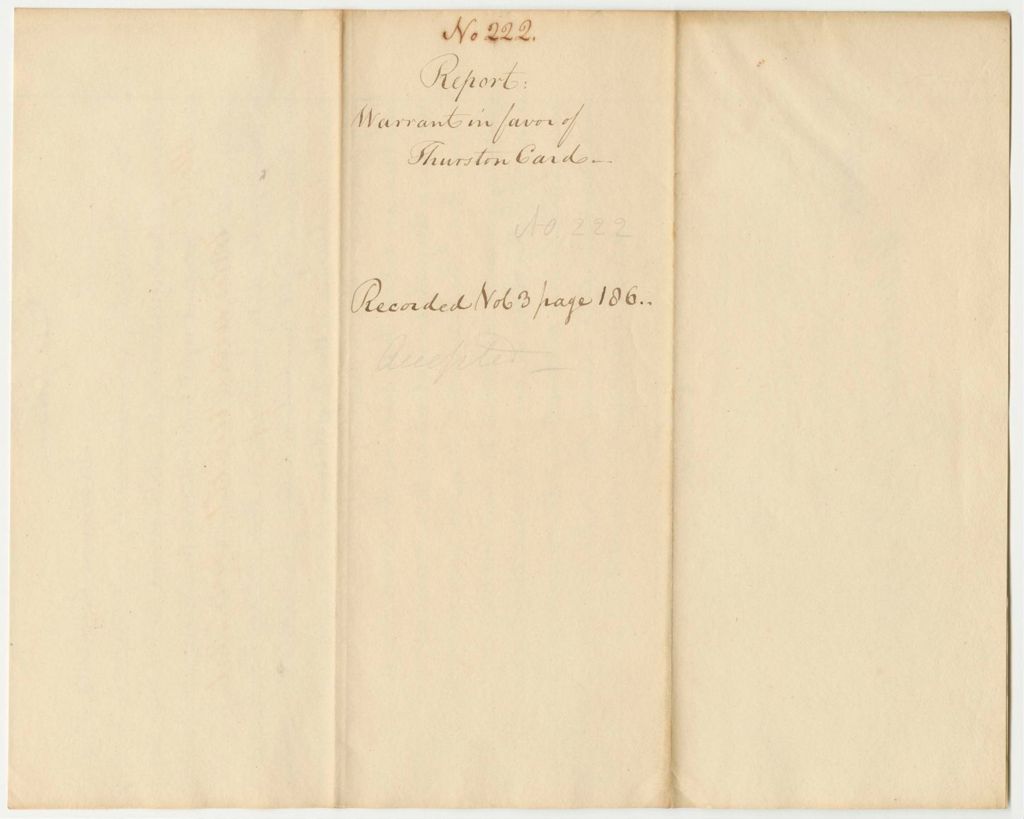 No 222.
Report:
Warrant in favor of
Thurston Card—
No. 222
Recorded Vol 3 page 186..
Accepted—